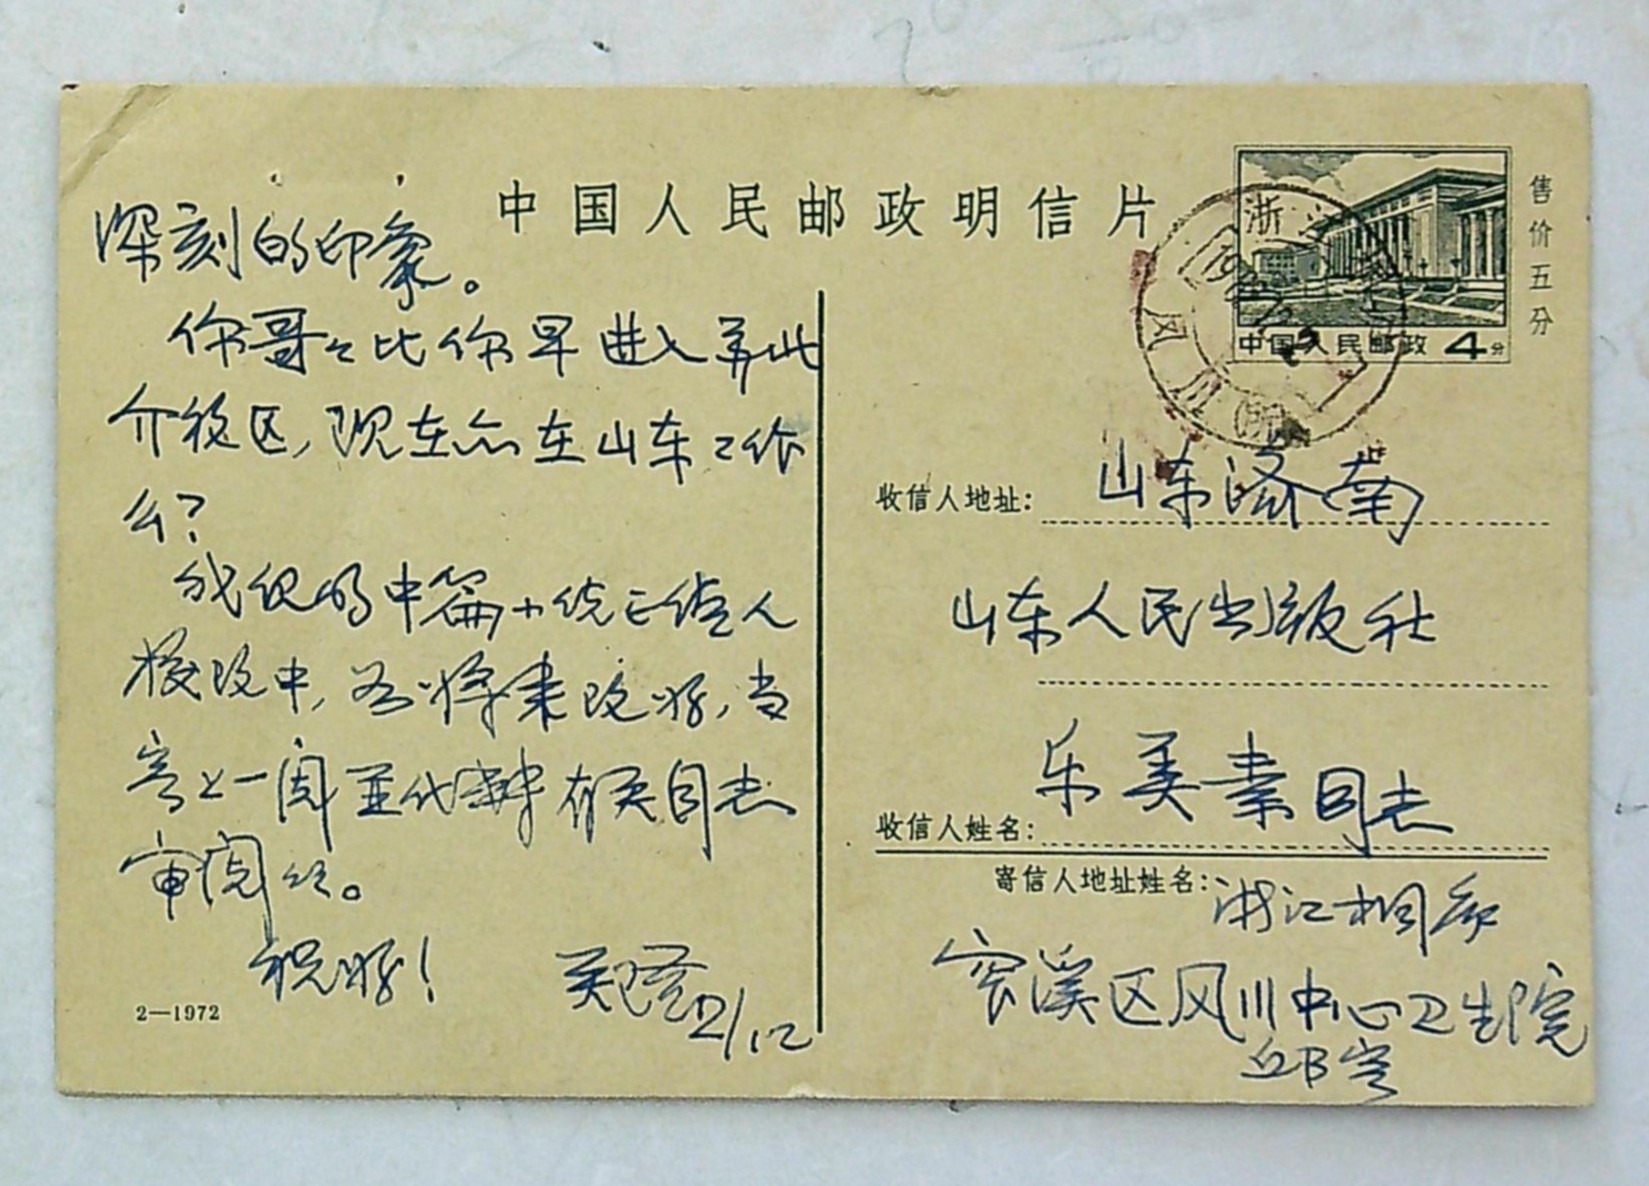 中国人民邮政明信片
售价五分
中国人民邮政 4分
浙
深刻的印象。
你哥々比你早进入
介校区,现在亦在山东工作
么?
我们的中篇小说正
校改中,若将来改好,当
寄上一阅并代 有关同志
审阅
祝好!
吴
2/12
2—1972
收信人地址:山东济南
山东人民出版社
收信人姓名:乐美素同志
寄信人地址姓名:浙江桐乡
区凤川中心卫生院
邱寄